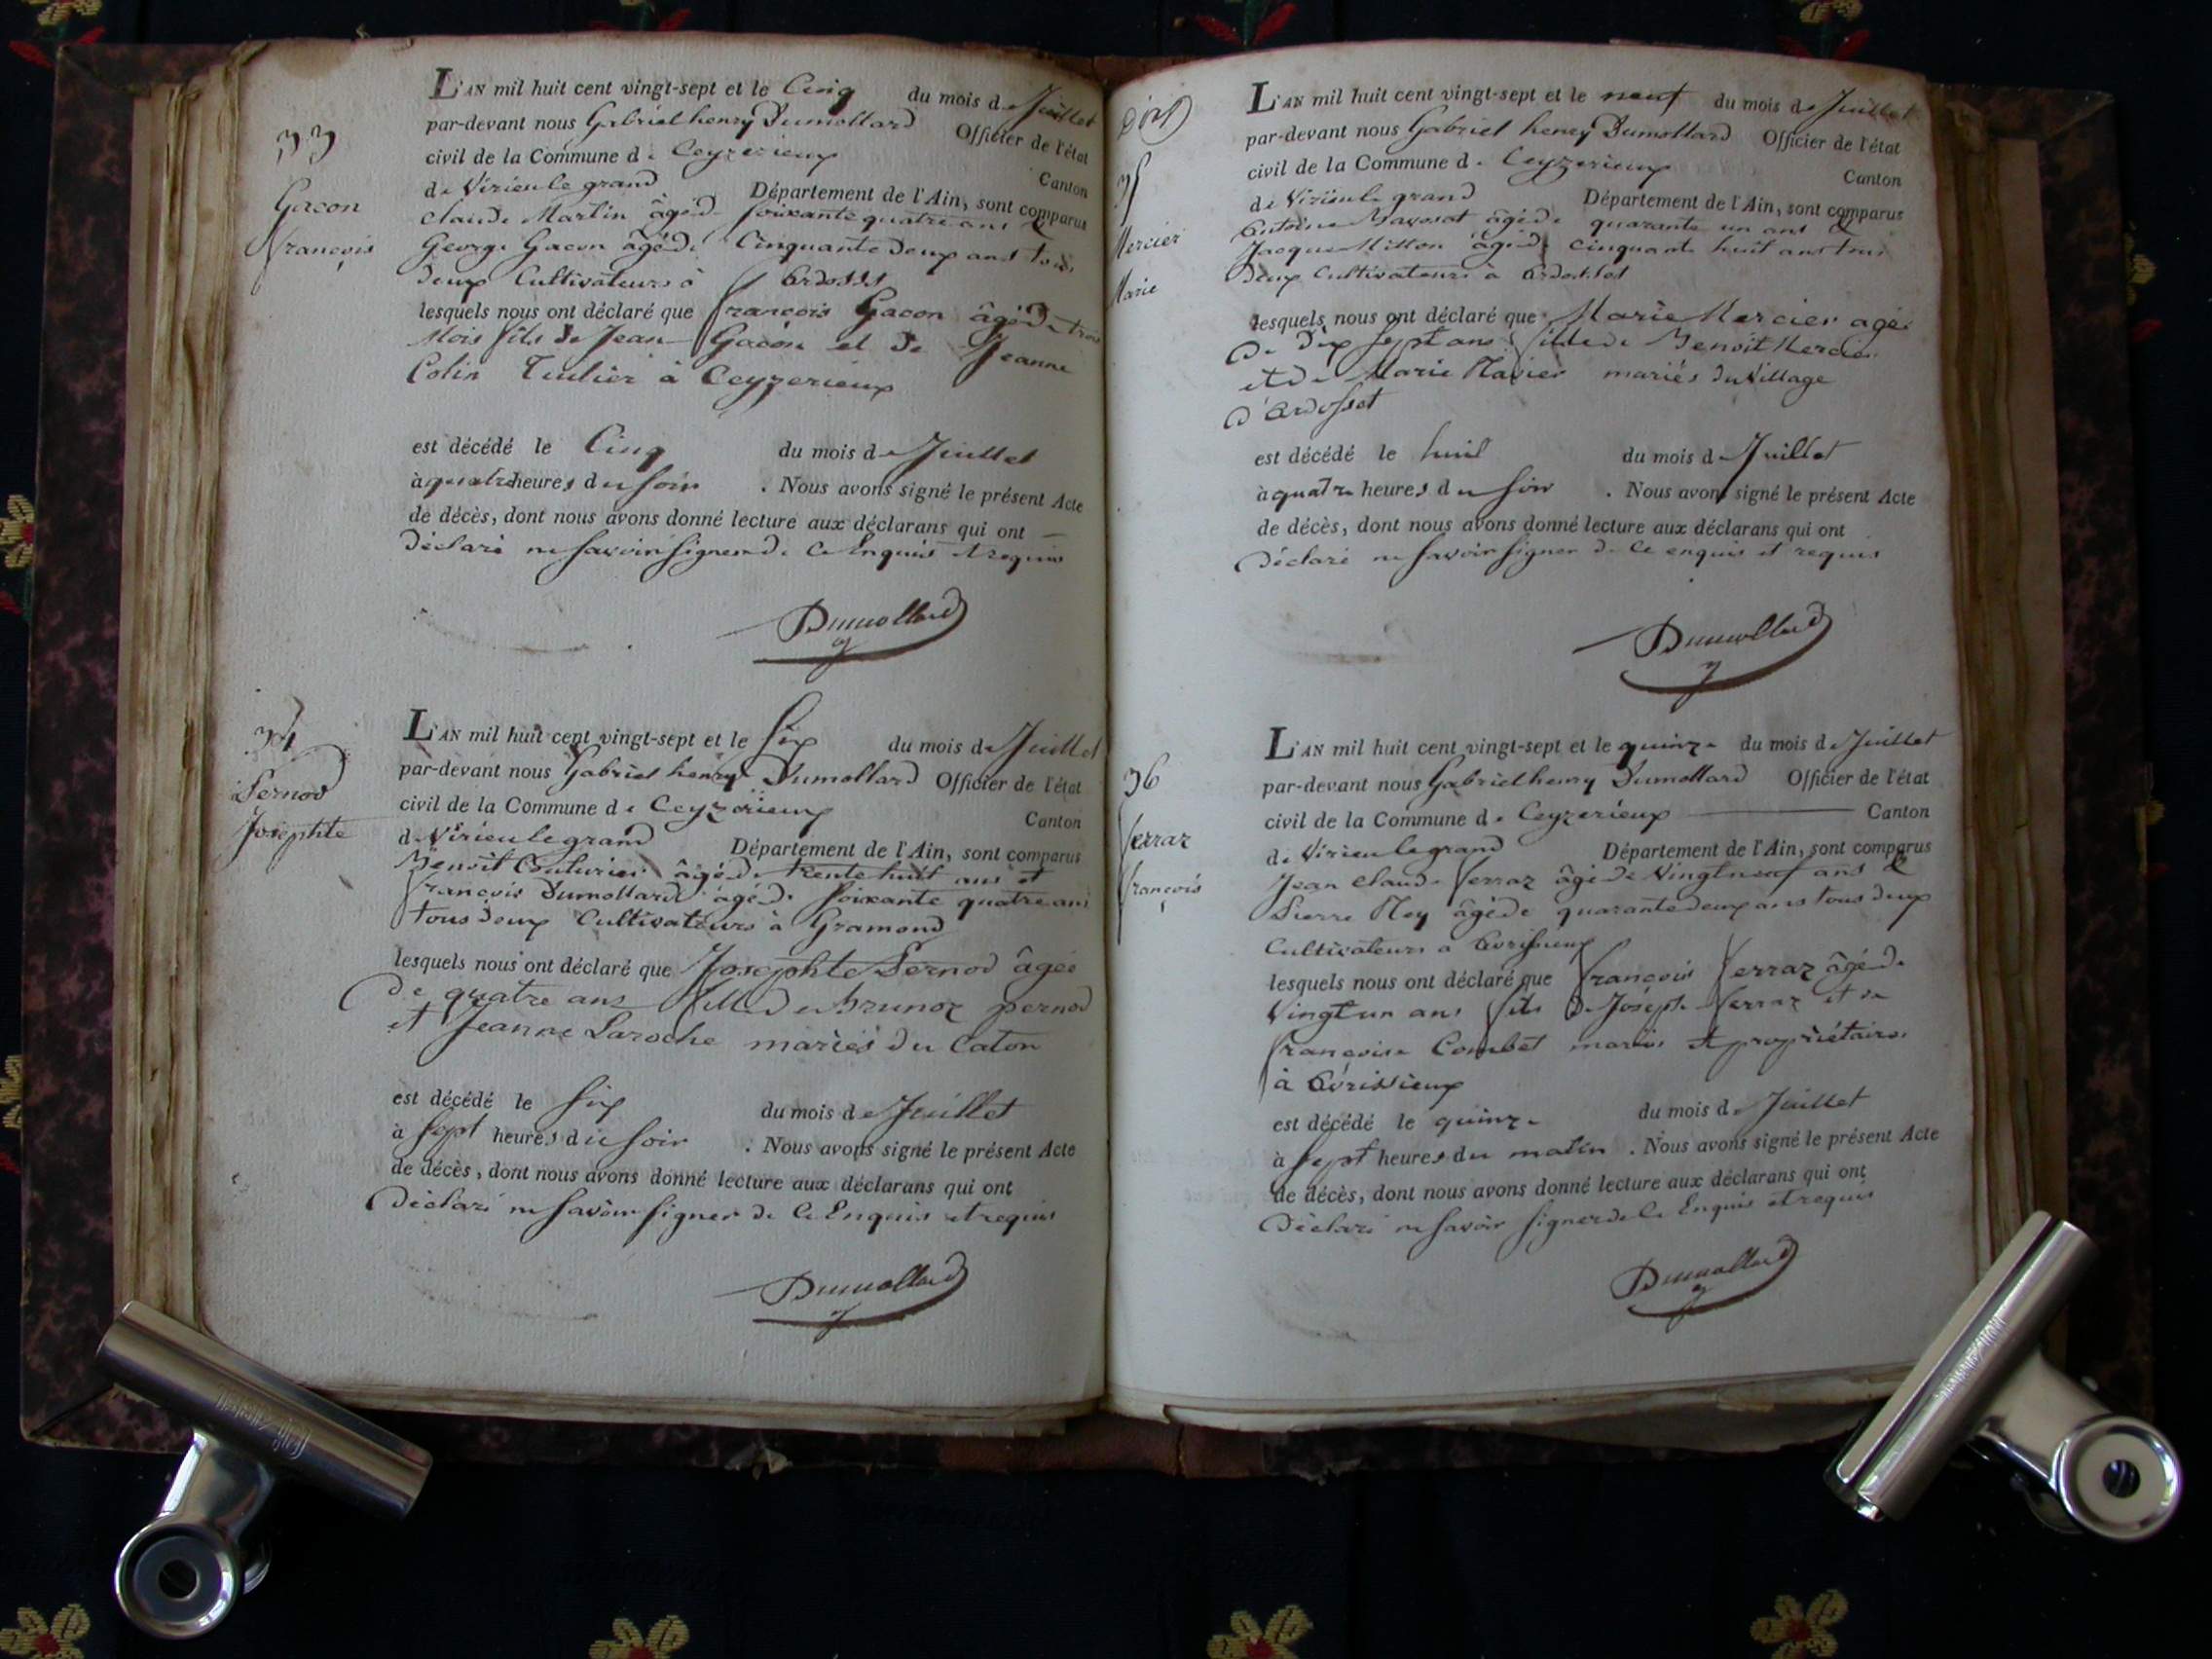 33
Gacon
françois
L'AN mil huit cent vingt-sept et le Cinq du mois de Juillet
par-devant nous Gabriel henry Dumollard Officier de l'état
civil de la Commune de Ceyzerieux Canton
de Virieu le grand Département de l'Ain, sont comparus
claude Martin âgé de soixante quatre ans &
George Gacon âgé de Cinquante deux ans tous
deux Cultivateurs à Ardosset
lesquels nous ont déclaré que françois Gacon âgé de trois
Mois fils de Jean Gacon et de Jeanne
Colin Tuilier à Ceyzerieux
est décédé le Cinq du mois de Juillet
à quatre heures du soir . Nous avons signé le présent Acte
de décès, dont nous avons donné lecture aux déclarans qui ont
déclaré ne savoir signer de ce Enquis et requis
Dumollard
34
Pernod
Josephte
L'AN mil huit cent vingt-sept et le six du mois de Juillet
par-devant nous Gabriel henry Dumollard Officier de l'état
civil de la Commune de Ceyzerieux Canton
de Virieu le grand Département de l'Ain, sont comparus
Benoît Couturier âgé de trente huit ans et
françois Dumollard âgé de soixante quatre ans
tous deux Cultivateurs à Gramond
lesquels nous ont déclaré que Josephte Pernod âgée
de quatre ans fille de brunoz pernod
et Jeanne Laroche mariés du Caton
est décédé le six du mois de Juillet
à sept heures du soir . Nous avons signé le présent Acte
de décès, dont nous avons donné lecture aux déclarans qui ont
Déclaré ne savoir signer de Ce Enquis et requis
Dumollard
35
Mercier
Marie
L'AN mil huit cent vingt-sept et le neuf du mois de Juillet
par-devant nous Gabriel henry Dumollard Officier de l'état
civil de la Commune de Ceyzerieux Canton
de Virieu le grand Département de l'Ain, sont comparus
Antoine âgé de quarante un ans &
Jacque Millon âgé de cinquante huit ans tous
deux Cultivateurs à Ardosset
lesquels nous ont déclaré que Marie Mercier agé
de dix sept ans fille de Benoît Mercier
et de Marie Navier mariés du Village
d'Ardosset
est décédé le huit du mois de Juillet
à quatre heures du soir . Nous avons signé le présent Acte
de décès, dont nous avons donné lecture aux déclarans qui ont
Déclaré ne savoir signer de Ce enquis et requis
Dumollard
36
ferraz
françois
L'AN mil huit cent vingt-sept et le quinze du mois de Juillet
par-devant nous Gabriel henry Dumollard Officier de l'état
civil de la Commune de Ceyzerieux Canton
de Virieu le grand Département de l'Ain, sont comparus
Jean claude ferraz âgé de Vingt neuf ans &
Pierre Rey âgé de quarante deux ans tous deux
Cultivateurs à Avrissieux
lesquels nous ont déclaré que françois ferraz âgé de
Vingt un ans fils de Joseph ferraz et de
françoise Combet mariés et propriétaires
à Avrissieux
est décédé le quinze du mois de Juillet
à sept heures du matin . Nous avons signé le présent Acte
de décès, dont nous avons donné lecture aux déclarans qui ont
Déclaré ne savoir signer de Ce Enquis et requis
Dumollard